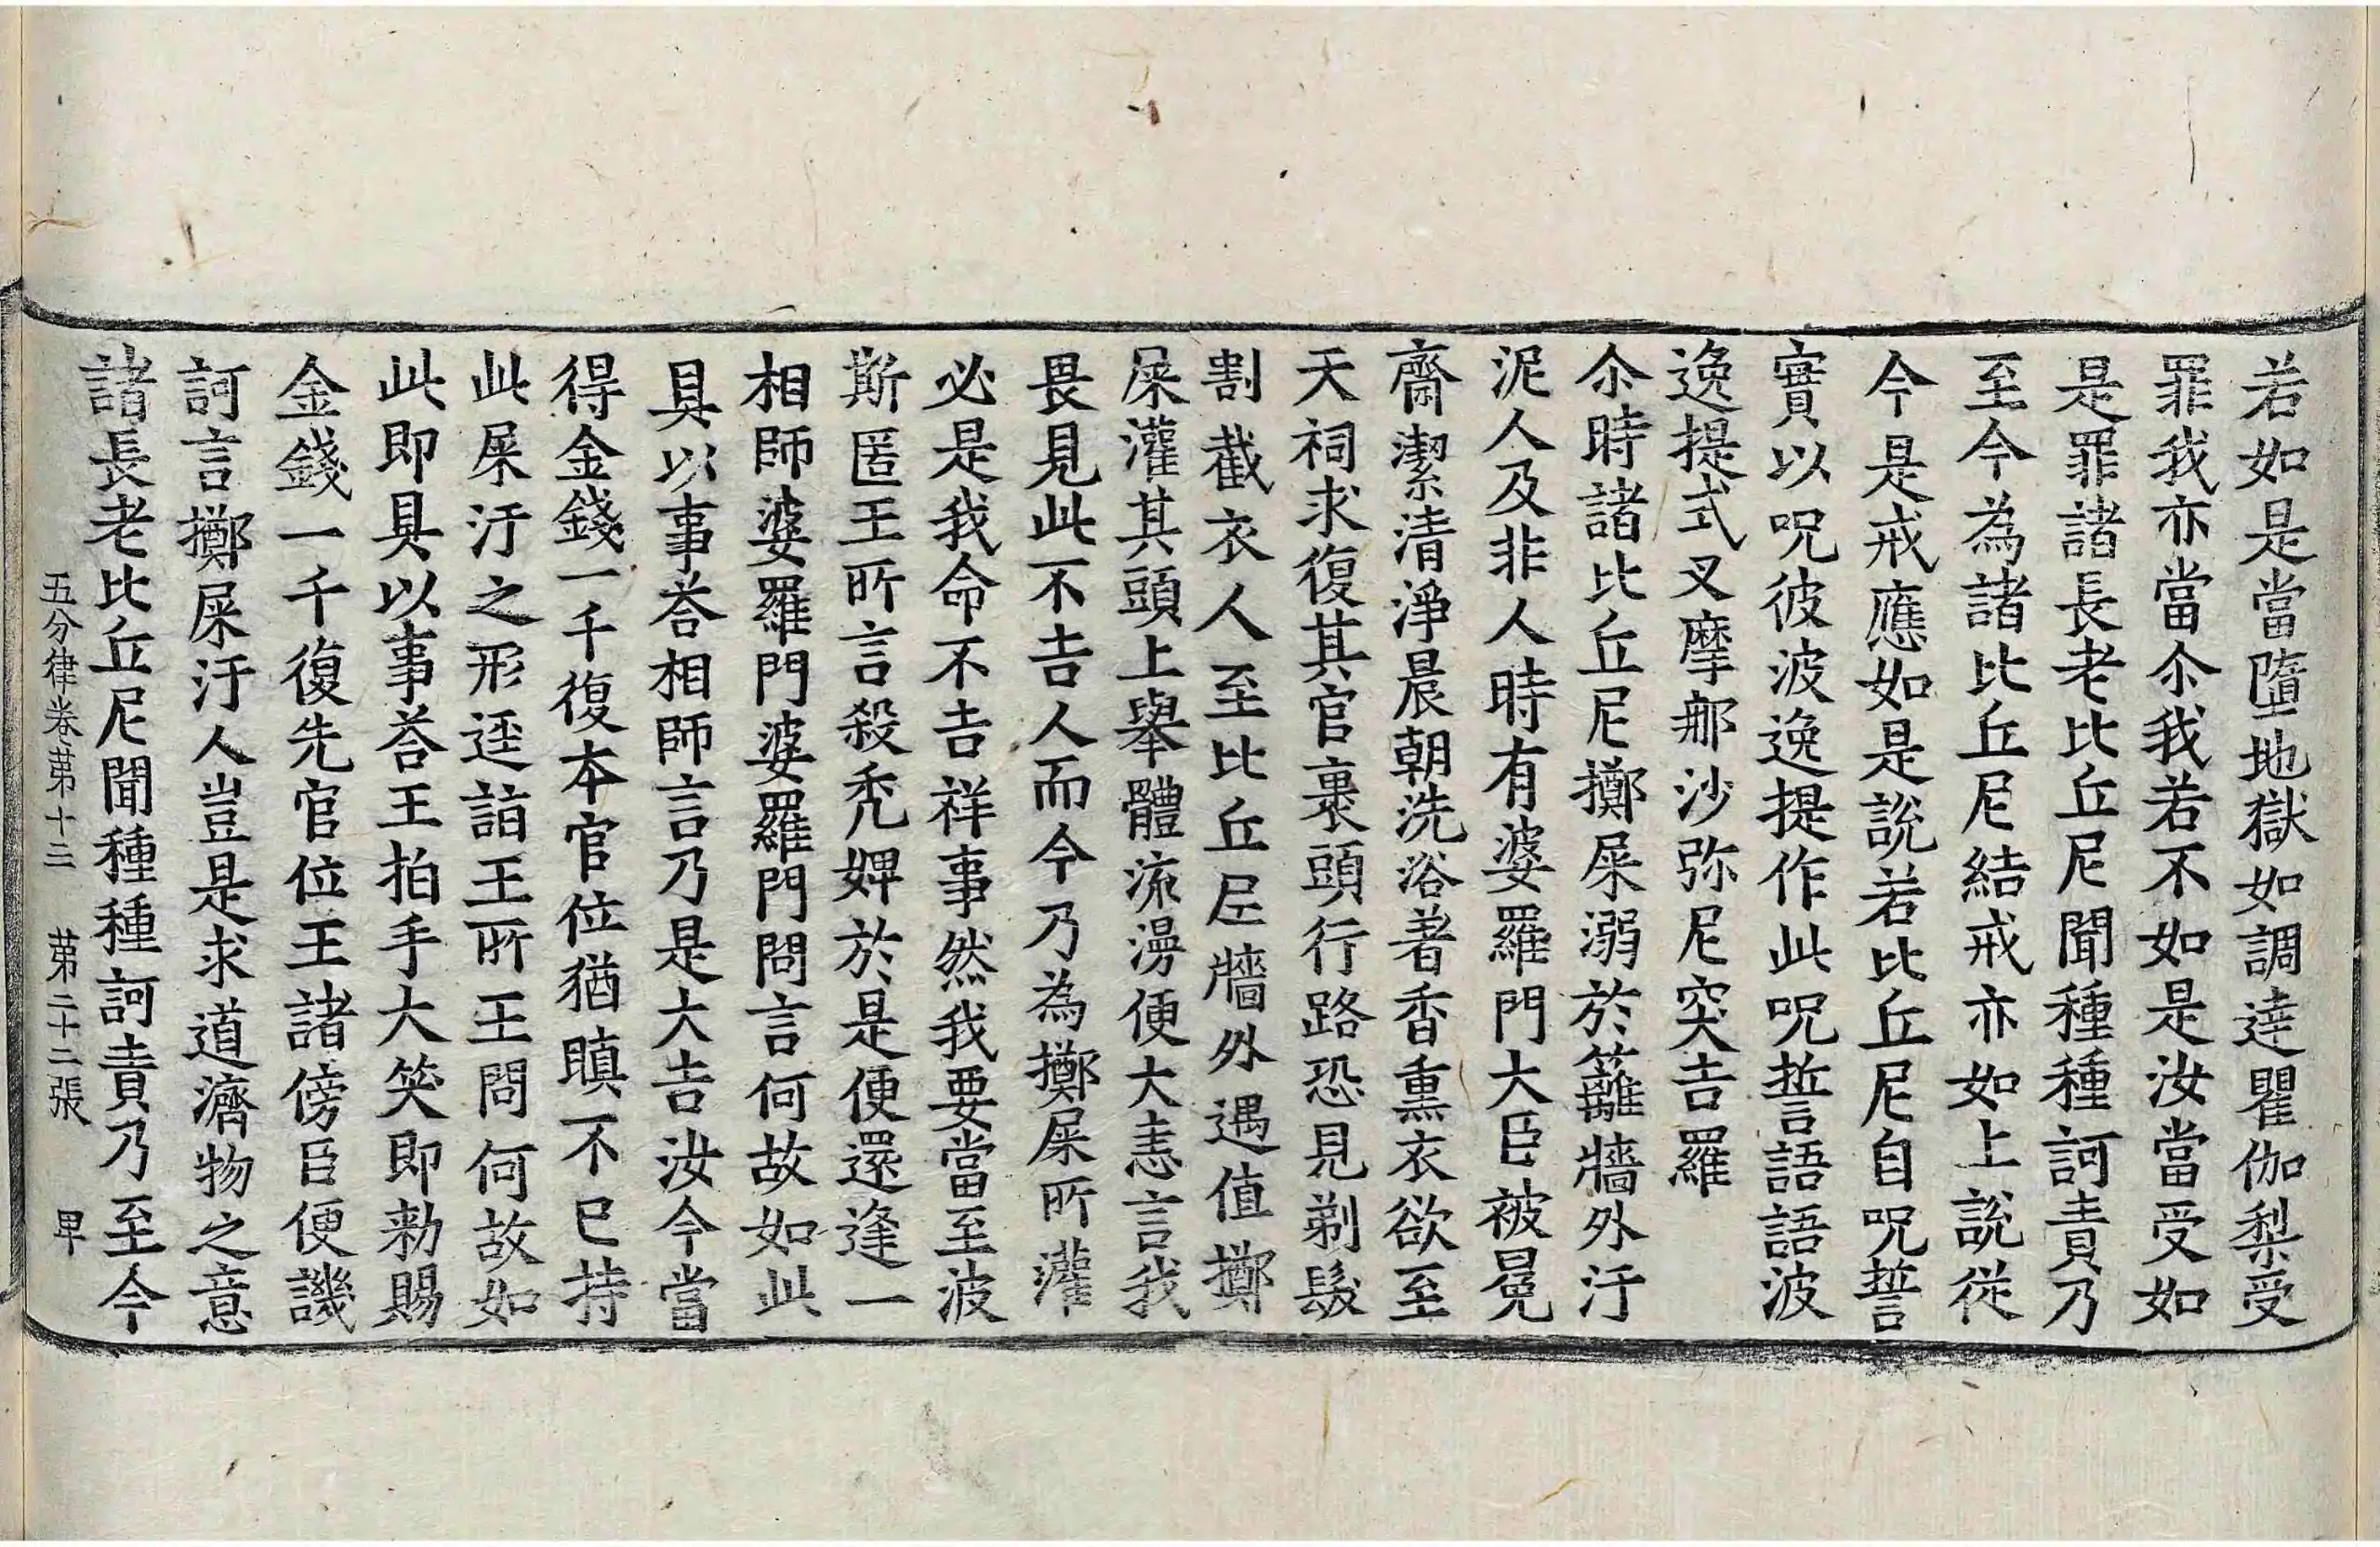 若如是當墮地獄如調達瞿伽梨受
罪我亦當尒我若不如是汝當受如
是罪諸長老比丘尼聞種種訶責乃
至今為諸比丘尼結戒亦如上說從
今是戒應如是說若比丘尼自呪誓
實以呪彼波逸提作此呪誓語語波
逸提式叉摩那沙弥尼突吉羅
尒時諸比丘尼擲屎溺於籬牆外汙
泥人及非人時有婆羅門大臣被冕
齋潔清淨晨朝洗浴著香熏衣欲至
天祠求復其官裹頭行路恐見剃髮
割截衣人至比丘尼牆外遇值擲
屎灌其頭上舉體流漫便大恚言我
畏見此不吉人而今乃為擲屎所灌
必是我命不吉祥事然我要當至波
斯匿王所言殺禿婢於是便還逢一
相師婆羅門婆羅門問言何故如此
具以事荅相師言乃是大吉汝今當
得金錢一千復本官位猶瞋不已持
此屎汙之形逕詣王所王問何故如
此即具以事荅王拍手大笑即勑賜
金錢一千復先官位王諸傍臣便譏
訶言擲屎汙人豈是求道濟物之意
諸長老比丘尼聞種種訶責乃至今
五分律卷第十三 第二十二張 早